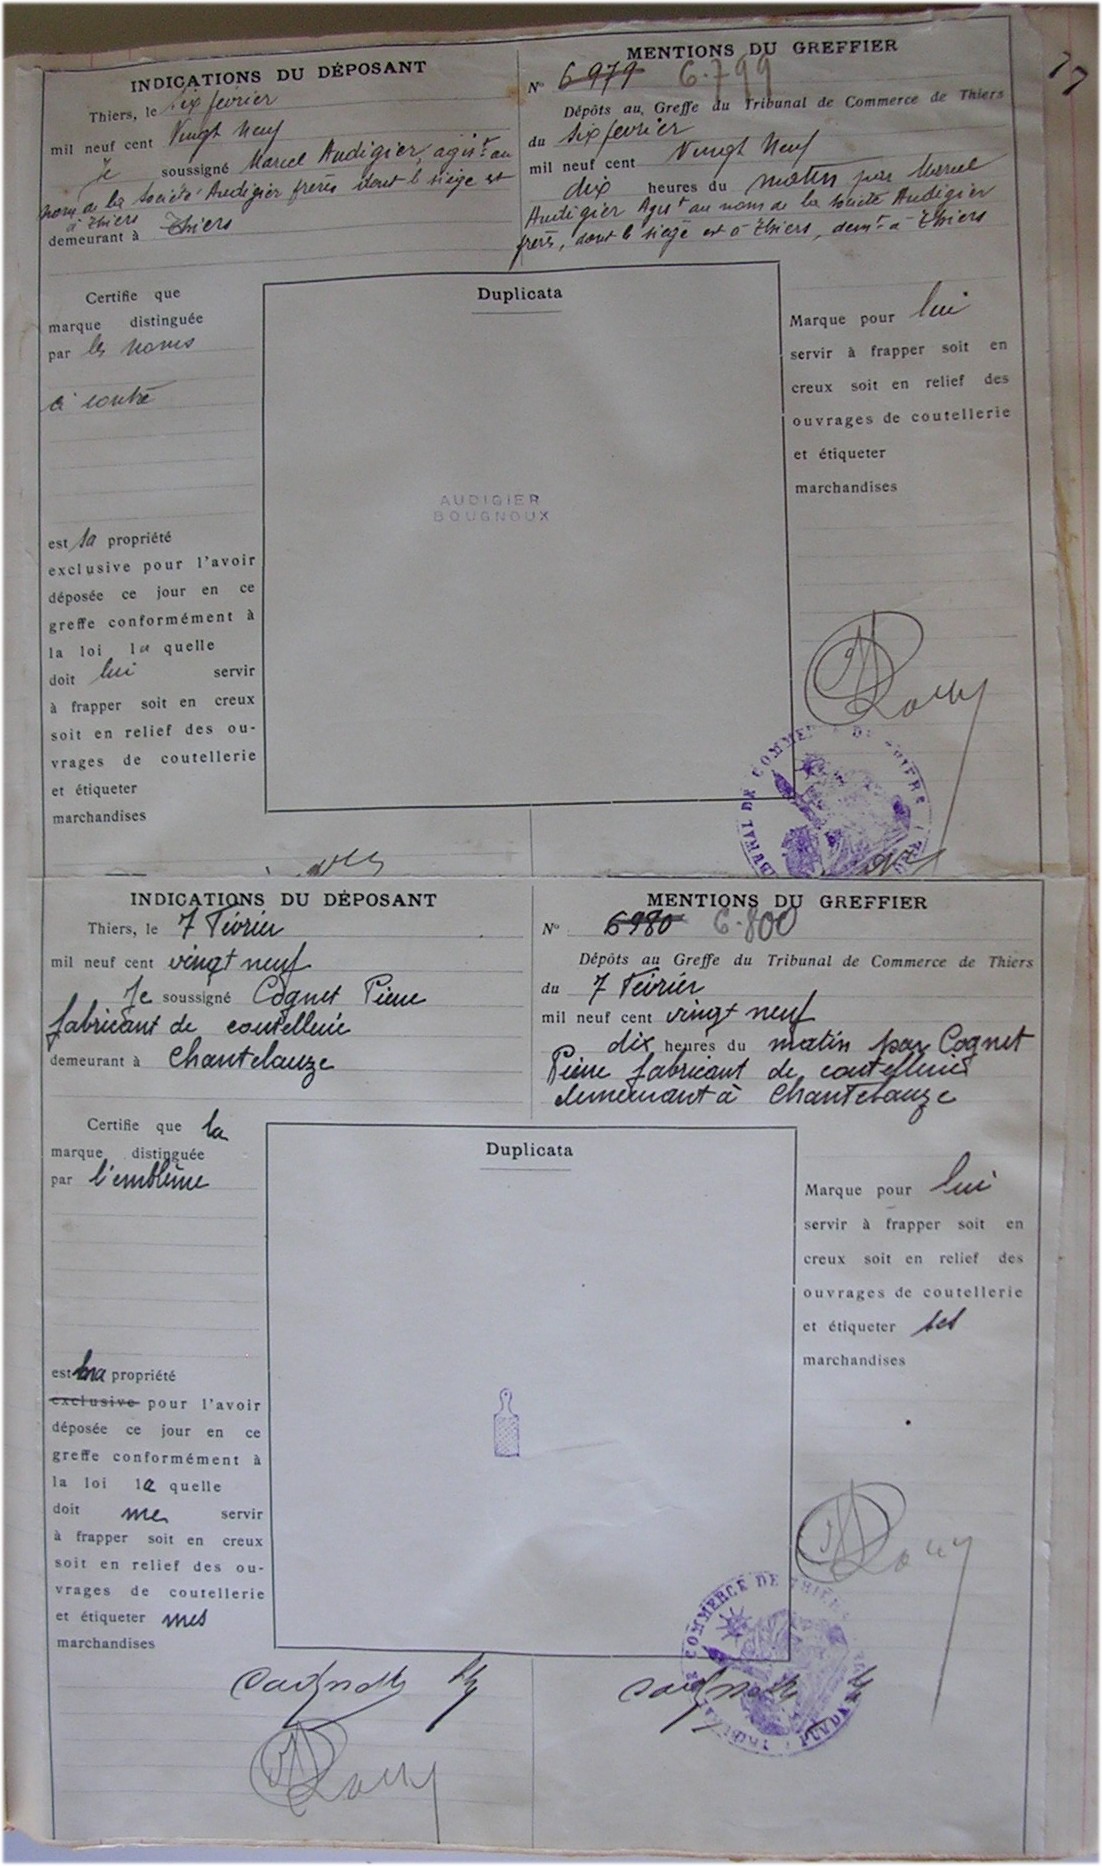 77
INDICATIONS DU DÉPOSANT
Thiers, le six février
mil neuf cent Vingt Neuf
Je soussigné Marcel Audigier, agist au
nom de la Société Audigier frères dont le siège est
à Thiers
demeurant à Thiers
MENTIONS DU GREFFIER
No 6979 6.799
Dépôts au Greffe du Tribunal de Commerce de Thiers
du six fevrier
mil neuf cent Vingt Neuf
dix heures du matin par Marcel
Audigier Agist au nom de la société Audigier
frères, dont le siège est à Thiers, demt à Thiers
Certifie que
marque distinguée
par les noms
ci contre
est sa propriété
exclusive pour l'avoir
déposée ce jour en ce
greffe conformément à
la loi la quelle
doit lui servir
à frapper soit en creux
soit en relief des ou-
vrages de coutellerie
et étiqueter
marchandises
Duplicata
AUDIGIER
BOUGNOUX
Marque pour lui
servir à frapper soit en
creux soit en relief des
ouvrages de coutellerie
et étiqueter
marchandises
COMMERCE DE THIERS
INDICATIONS DU DÉPOSANT
Thiers, le 7 Février
mil neuf cent vingt neuf
Je soussigné Cognet Pierre
fabricant de coutellerie
demeurant à Chantelauze
MENTIONS DU GREFFIER
No 6980 6.800
Dépôts au Greffe du Tribunal de Commerce de Thiers
du 7 Février
mil neuf cent vingt neuf
dix heures du matin par Cognet
Pierre fabricant de coutellerie
demeurant à Chantelauze
Certifie que la
marque distinguée
par l'emblème
est ma propriété
exclusive pour l'avoir
déposée ce jour en ce
greffe conformément à
la loi la quelle
doit me servir
à frapper soit en creux
soit en relief des ou-
vrages de coutellerie
et étiqueter mes
marchandises
Duplicata
Marque pour lui
servir à frapper soit en
creux soit en relief des
ouvrages de coutellerie
et étiqueter ses
marchandises
TRIBUNAL DE COMMERCE DE THIERS